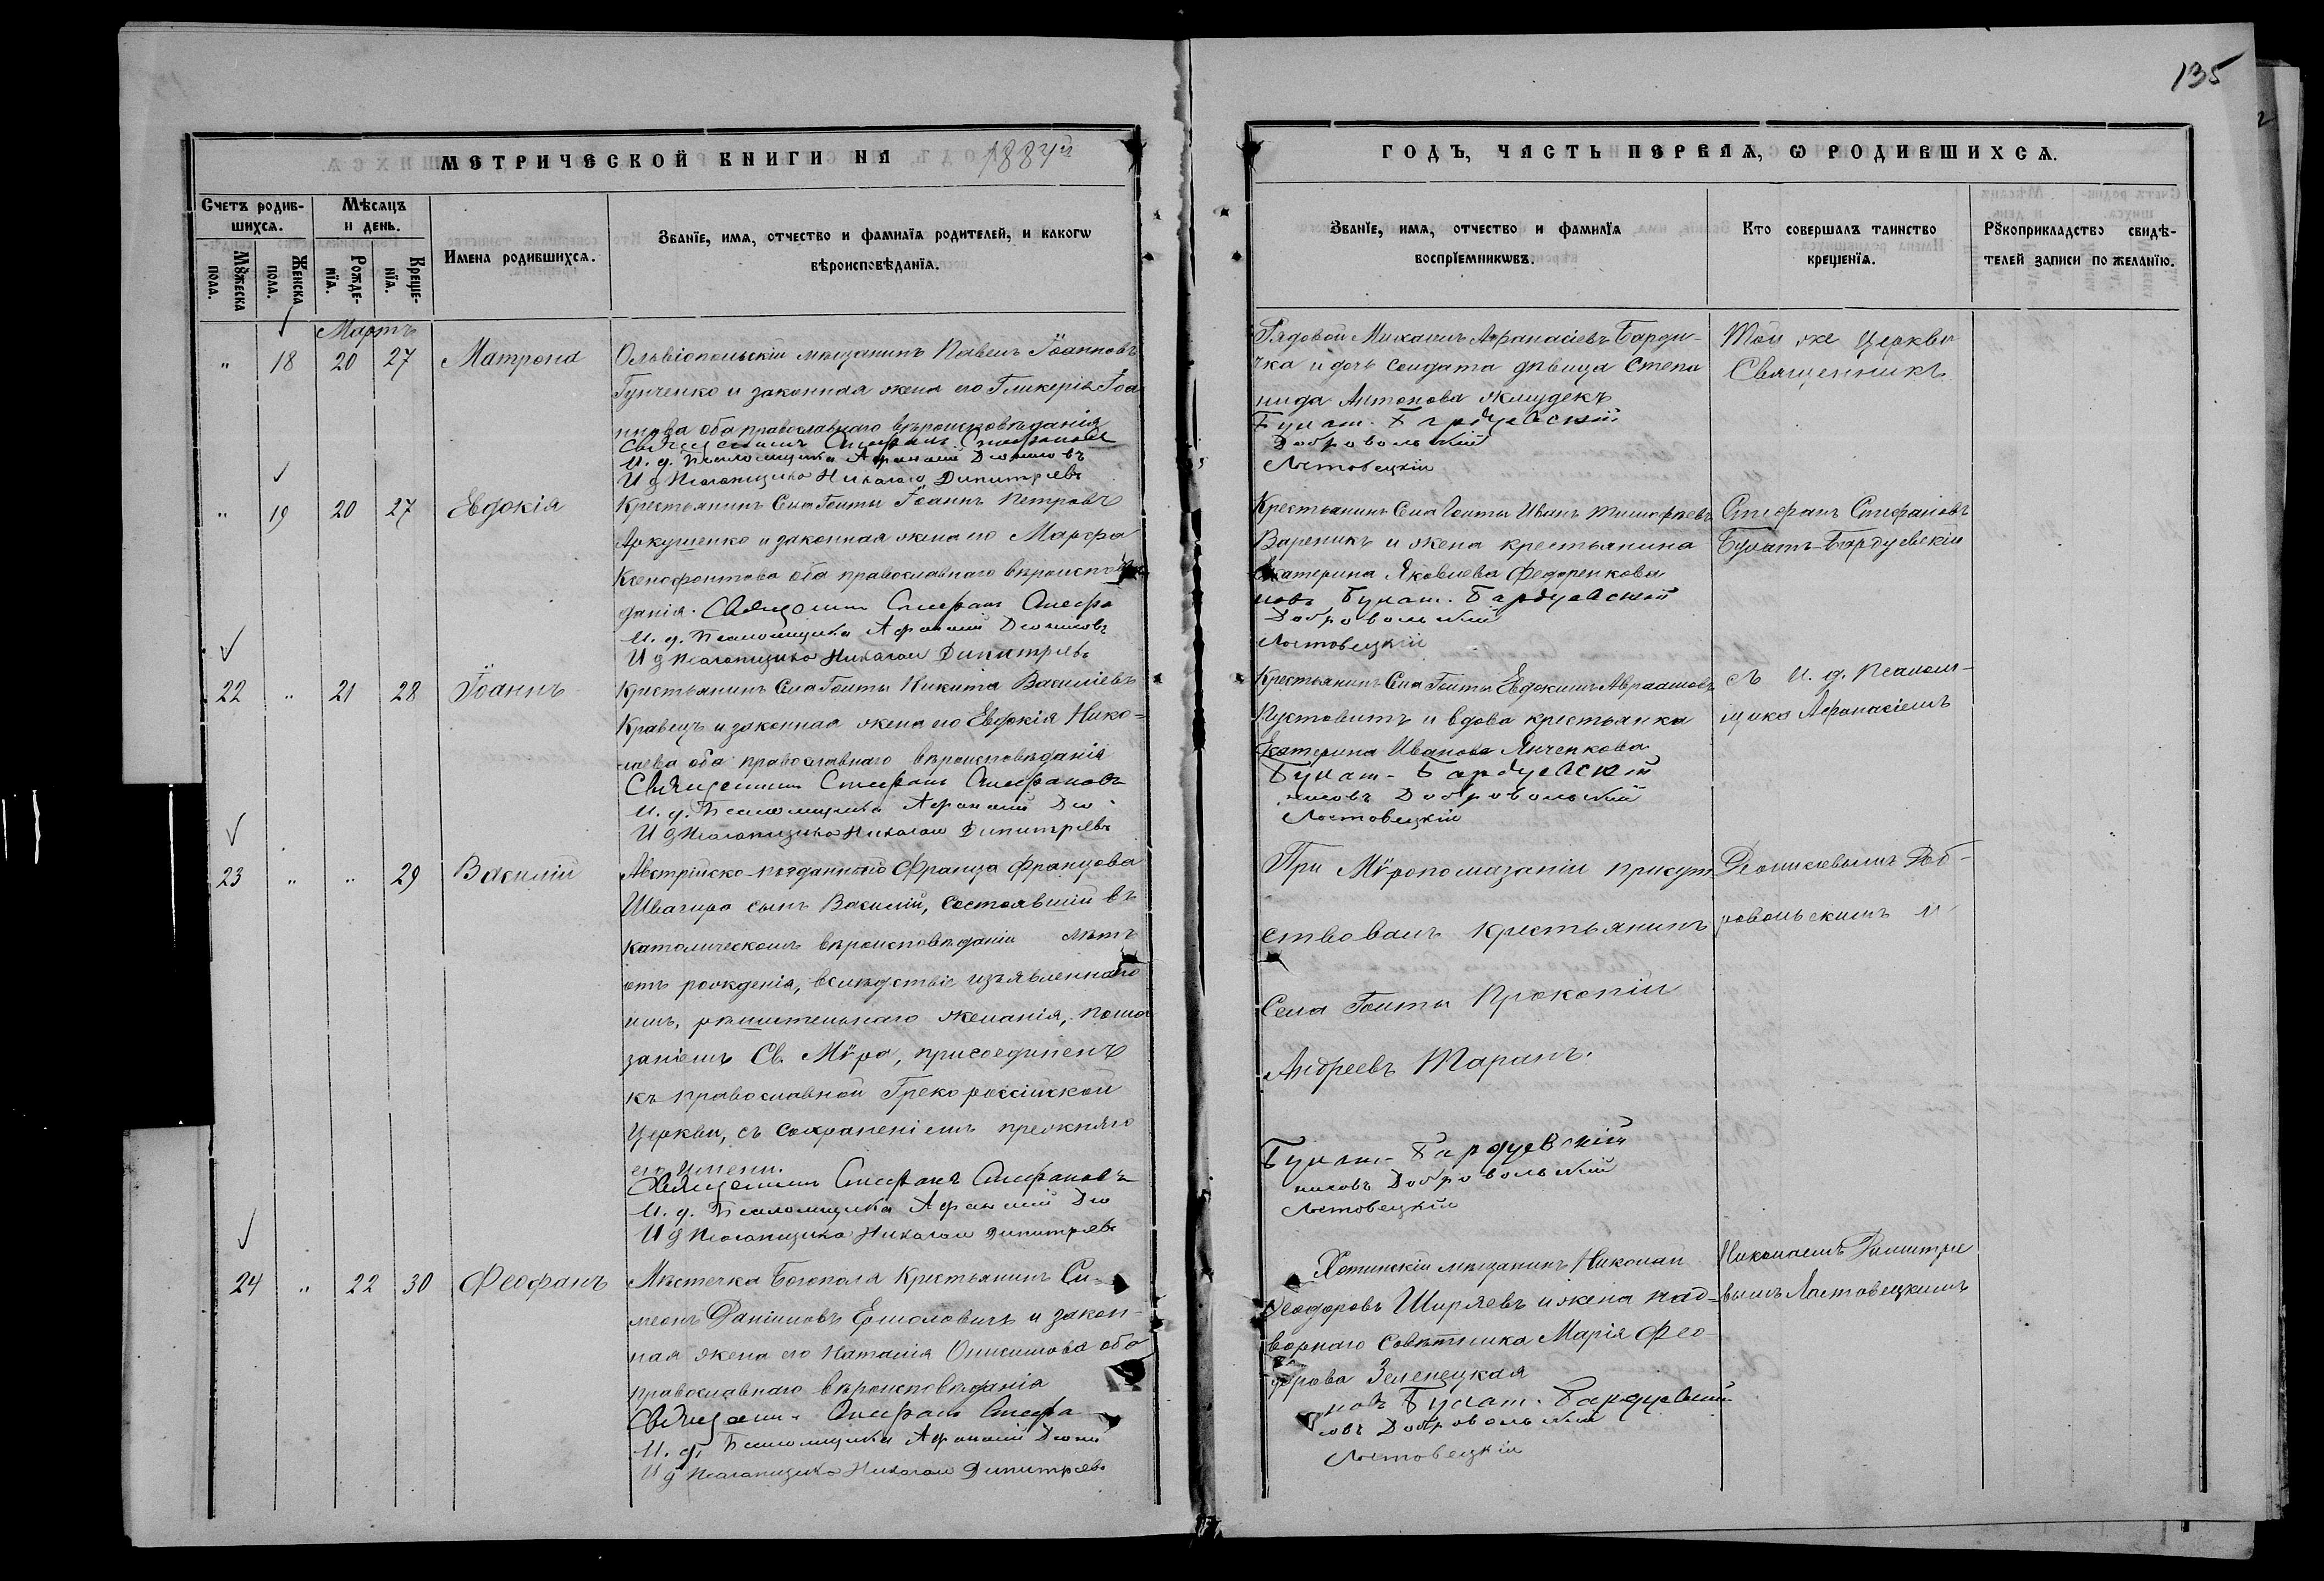 135
МЕТРИЧЕСКОЙ КНИГИ НА 1884й
ГОДЪ, ЧАСТЬ ПЕРВАЯ, Ѡ РОДИВШИХСѦ.
Счетъ родив-
шихсѧ.
Мѣсѧцъ
и день.
Имена родившихсѧ.
Званїе, имѧ, отчество и фамилїѧ родителей, и какогѡ
вѣроисповѣданїѧ.
Мꙋжеска
пола.
Женска
пола.
Рожде-
нїѧ.
Креще-
нїѧ.
Званїе, имѧ, отчество и фамилїѧ
воспрїемникѡвъ.
Кто совершалъ таинство
крещенїѧ.
Рꙋкоприкладство свидѣ-
телей записи по желанїю.
Мартъ
" 18 20 27 Матрона
Ольвіопольскій мѣщанинъ Павелъ Іоанновъ
Гунченко и законная жена его Гликерія Іоа
ннова оба православнаго вѣроисповѣданія
Священникъ Стефанъ Стефановъ
И. д. Псаломщика Афанасій Діонисовъ
И д Псаломщика Николай Димитріевъ
Рядовой Михаилъ Афанасіевъ Барди-
чка и дочь солдата дѣвица Степа
нида Антонова Жмудекъ
Булат. Бардуевскій
Добровольскій
Лостовецкій
Той же Церкви
Священникъ
" 19 20 27 Евдокія
Крестьянинъ Села Голты Іоаннъ Петровъ
Аркушенко и законная жена его Марфа
Ксенофонтова оба православнаго вѣроиспо
данія. Священникъ Стефанъ Стефа
И. д. Псаломщика Афанасій Діонисовъ
И д Псаломщика Николай Димитріевъ
Крестьянинъ Села Голты Иванъ Тимофѣевъ
Вареникъ и жена крестьянина
Екатерина Яковлева Федоренкова
новъ Булат. Бардуевскій
Добровольскій
Лостовецкій
Стефанъ Стефановъ
Булатъ-Бардуевскій
22 " 21 28 Іоаннъ
Крестьянинъ Села Голты Никита Василіевъ
Кравецъ и законная жена его Евдокія Нико-
лаева оба православнаго вѣроисповѣданія
Священникъ Стефанъ Стефановъ
И. д. Псаломщика Афанасій Діо
И д Псаломщика Николай Димитріевъ
Крестьянинъ Села Голты Евдокимъ Авраамовъ
Пустовитъ и вдова крестьянка
Екатерина Иванова Янченкова
Булат- Бардуевскій
нисовъ Добровольскій
Лостовецкій
съ И. д. Псалом-
щика Афанасіемъ
23 " " 29 Василій
Австрійско-подданнаго Франца Францова
Швагира сынъ Василій, состоявшій въ
католическомъ вѣроисповѣданіи лѣтъ
отъ рожденія, вслѣдствіе изъявленнаго
имъ, рѣшительнаго желанія, пома
заніемъ Св. Мѵра, присоединенъ
къ православной Грекороссійской
Церкви, съ сохраненіемъ прежняго
его имени.
Священникъ Стефанъ Стефановъ
И. д. Псаломщика Афанасій Діо
И д Псаломщика Николай Димитріевъ
При Мѵропомазаніи присут
ствовалъ крестьянинъ
Села Голты Прокопій
Андреевъ Таранъ.
Булат- Бардуевскій
нисовъ Добровольскій
Лостовецкій
Діонисовымъ Доб-
ровольскимъ и
24 " 22 30 Феофанъ
Мѣстечка Богополя Крестьянинъ Си-
меонъ Даніиловъ Ермоловичъ и закон-
ная жена его Наталія Онисимова оба
православнаго вѣроисповѣданія
Священникъ Стефанъ Стефа
И. д. Псаломщика Афанасій Діони
И д Псаломщика Николай Димитріевъ
Хотинскій мѣщанинъ Николай
Феодоровъ Ширяевъ и жена над-
ворнаго совѣтника Марія Фео
дорова Зеленецкая
новъ Булат. Бардуевскій
совъ Добровольскій
Лостовецкій
Николаемъ Димитріе
вымъ Лостовецкимъ